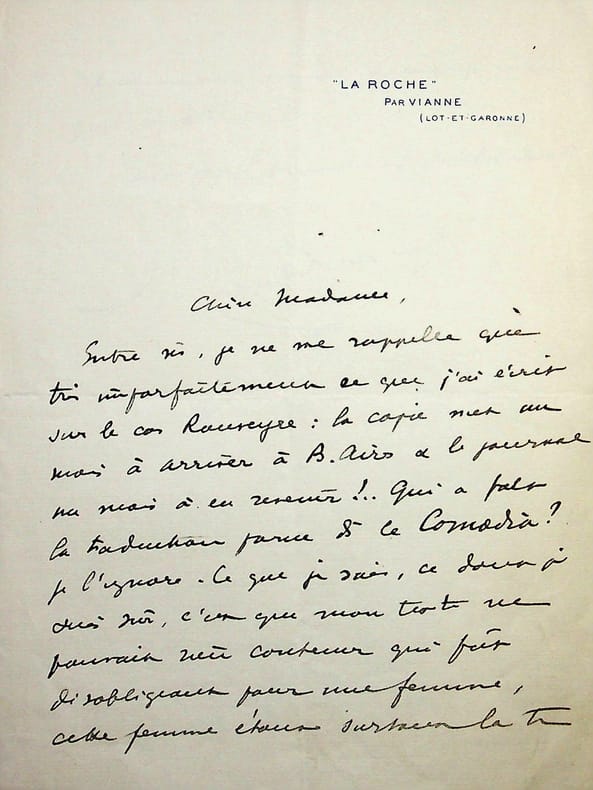 "LA ROCHE"
PAR VIANNE
(LOT-ET-GARONNE)
Chère Madame,
Entre ns, je ne me rappelle que
très imparfaitement ce que j'ai écrit
sur le cas Rouveyre : la copie met un
mois à arriver à B. Airs & le journal
un mois à en revenir !.. Qui a fait
la traduction parue ds le Comœdia ?
je l'ignore. Ce que je sais, ce dont je
suis sûr, c'est que mon texte ne
pouvait rien contenir qui fût
désobligeant pour une femme,
cette femme étant surtout la